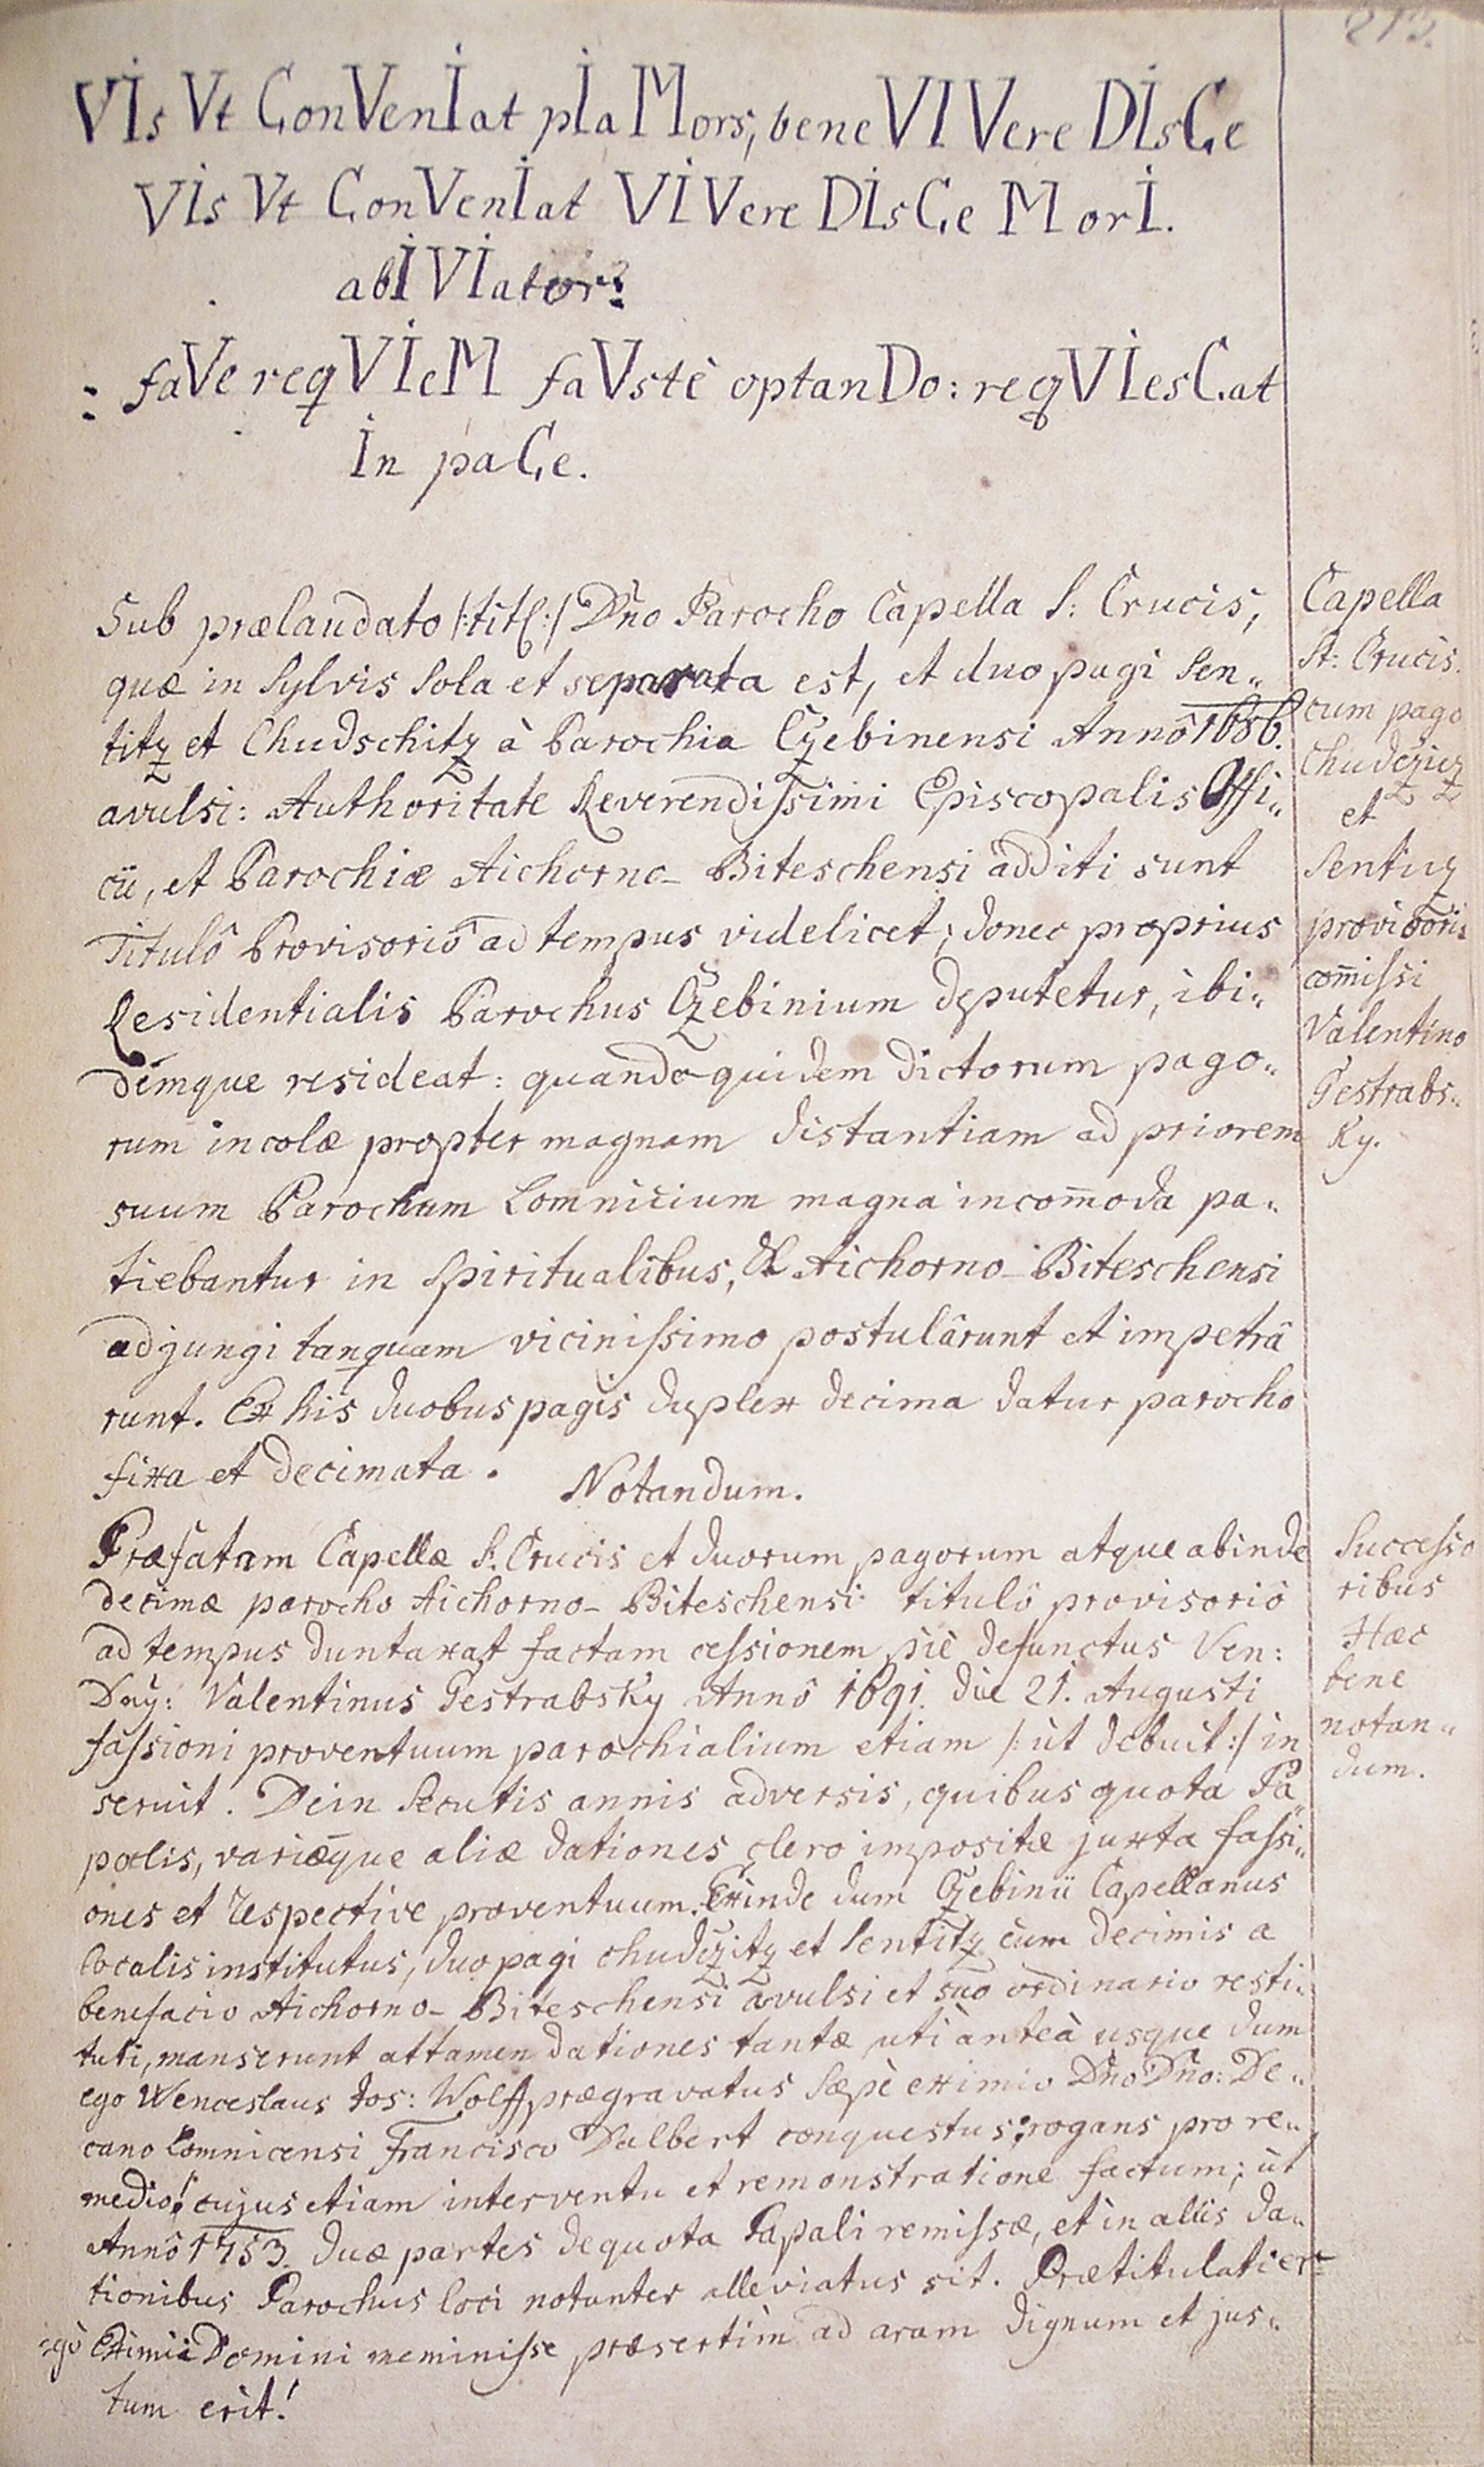 VIs Vt ConVenIat pIa Mors, bene VIVere DIsCe
VIs Vt ConVenIat VIVere DIsCe MorI.
abI VIator:
: faVe reqVIeM faVstè optanDo: reqVIesCat
In paCe.
Sub prælaudato /:titl:/ Dño Parocho Capella S: Crucis,
quæ in Sylvis sola et separata est, et duo pagi Sen„
titz et Chudschitz à Parochia Czebinensi Annô 1686.
avulsi: Authoritate Reverendissimi Episcopalis Offi„
cii, et Parochiæ Aichorno-Biteschensi additi sunt
Titulô Provisoriô ad tempus videlicet; donec proprius
Residentialis Parochus Czebinium deputetur, ibi„
demque resideat: quandoquidem dictorum pago„
rum incolæ propter magnam distantiam ad priorem
suum Parochum Lomnicium magna incom̄oda pa„
tiebantur in Spiritualibus, & Aichorno-Biteschensi
adjungi tanquam vicinissimo postulârunt et impetrâ
runt. Ex his duobus pagis duplex decima datur parocho
fixa et decimata.
Notandum.
Præfatam Capellæ S: Crucis et duorum pagorum atque abinde
decimæ parocho Aichorno-Biteschensi titulô provisoriô
ad tempus duntaxat factam cessionem piè defunctus Ven:
Dnꝰ: Valentinus Gestrabsky Annô 1691. die 21. Augusti
fassioni proventuum parochialium etiam /: ùt debuit:/ in
seruit. Dein Secutis annis adversis, quibus quota Pa„
palis, variæque aliæ dationes clero impositæ juxta fassi„
ones et respective proventuum. Exinde dum Czebinii Capellanus
localis institutus, duo pagi Chudczitz et Sentitz cum decimis a
beneficio Aichorno-Biteschensi avulsi et suo ordinario resti„
tuti, manserunt attamen dationes tantæ utiànteà usque dum
ego Wenceslaus Jos: Wolff prægravatus Sæpè eximio Dño Dño: De„
cano Lomnicensi Francisco Dalbert conquestus; rogans pro re„
medio! cujus etiam interventu et remonstratione factum; ùt
Annô 1753. duæ partes de quota Papali remissæ, et in aliis da„
tionibus Parochus loci notanter alleviatus sit. Prætitulati er„
=gò Eximii Domini meminisse præsertim ad aram dignum et jus„
tum erit!
Capella
St: Crucis
cum pago
Chudcziz
et
Sentiz
provisoriè
com̄issi
Valentino
Gestrabs„
ky.
Successo
ribus
Hæc
bene
notan„
dum.